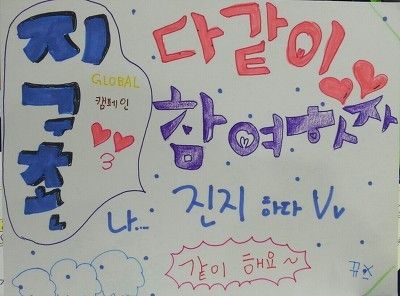 지구촌
GLOBAL
캠페인
다같이
참여하자
나... 진지 하다 V
같이 해요~